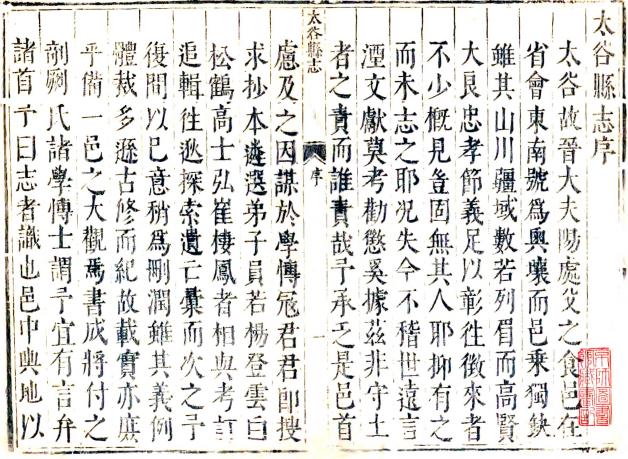 太谷縣志序
太谷故晉大夫陽處父之食邑在
省會東南號爲奧壤而邑乘獨缺
雖其山川疆域數若列眉而高賢
大良忠孝節義足以彰徃徴來者
不少槪見豈固無其人耶抑有之
而未志之耶况失今不稽世遠言
湮文獻莫考勸懲奚據茲非守土
者之責而誰責哉予承乏是邑首
太谷縣志
序
一
慮及之因謀於學愽冦君君卽搜
求抄本遴選弟子員若楊登雲白
松鶴高士弘崔棲鳳者相與考訂
追輯徃逖探索遺亡彙而次之予
復間以已意稍爲刪潤雖其義例
體裁多遜古修而紀故載實亦庶
乎備一邑之大觀焉書成將付之
剞劂氏諸學愽士謂予宜有言弁
諸首予曰志者識也邑中輿地以